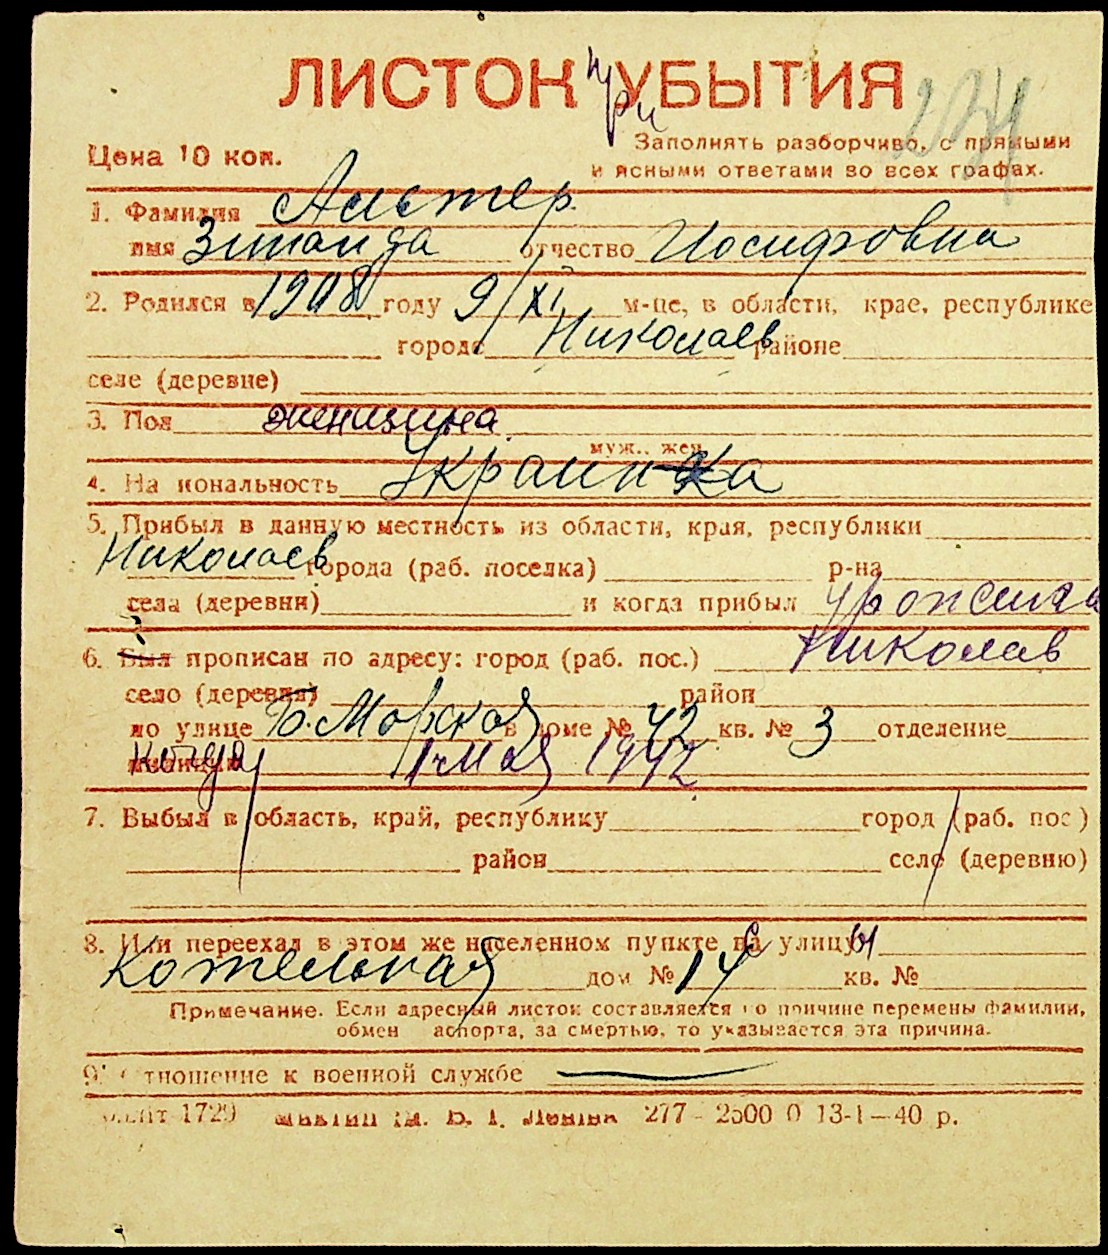 ЛИСТОК при УБЫТИЯ
Цена 10 коп.
Заполнять разборчиво, с прямыми
и ясными ответами во всех графах.
1. Фамилия Альтер
имя Зинаида отчество Иосифовна
2. Родился в 1908 году 9/XI м-це, в области, крае, республике
городе Николаев районе
селе (деревне)
3. Пол женщина
муж., жен.
4. Национальность Украинка
5. Прибыл в данную местность из области, края, республики
Николаев города (раб. поселка) р-на
села (деревни) и когда прибыл урожен
6. Был прописан по адресу: город (раб. пос.) Николаев
село (деревня) район
по улице Б. Морской в доме № 42 кв. № 3 отделение
когда 1 мая 1942
7. Выбыл в область, край, республику город (раб. пос)
район село (деревню)
8. Или переехал в этом же населенном пункте на улицы
Котельная дом № 14 кв. №
Примечание. Если адресный листок составляется по причине перемены фамилии,
обмен паспорта, за смертью, то указывается эта причина.
9. Отношение к военной службе
1729 277 - 2500 0 13-1-40 р.